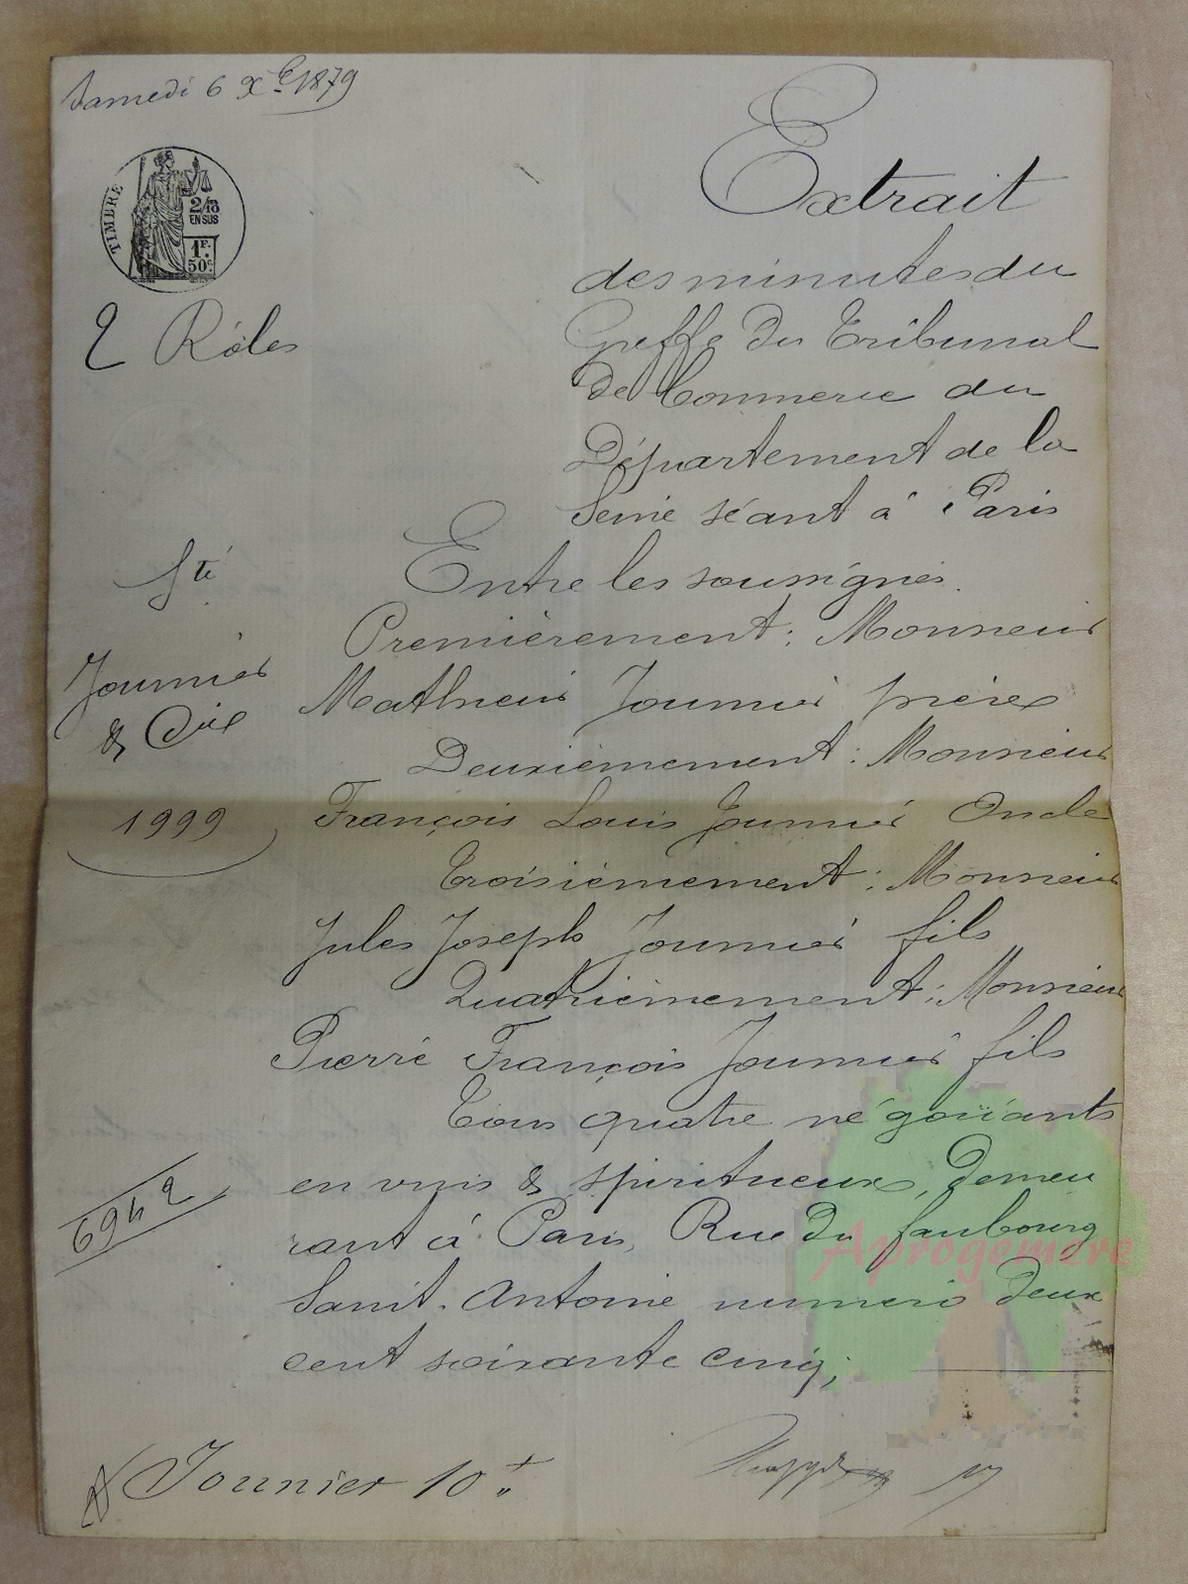 Samedi 6 Xbre 1879
TIMBRE
2/10
EN SUS
1F.
50c
2 Rôles
Sté
Jounier
& Cie
1999
6942
Extrait
des minutes du
Greffe du Tribunal
de Commerce du
Département de la
Seine séant à Paris
Entre les soussignés.
Premièrement : Monsieur
Mathieu Jounier père
Deuxièmement : Monsieur
François Louis Jounier Oncle
Troisièmement : Monsieur
Jules Joseph Jounier fils
Quatrièmement : Monsieur
Pierre François Jounier fils
Tous quatre négociants
en vins & spiritueux, demeu
rant à Paris, Rue du faubourg
Saint. Antoine numéro deux
cent soixante cinq;
Jounier 10
Aprogemère